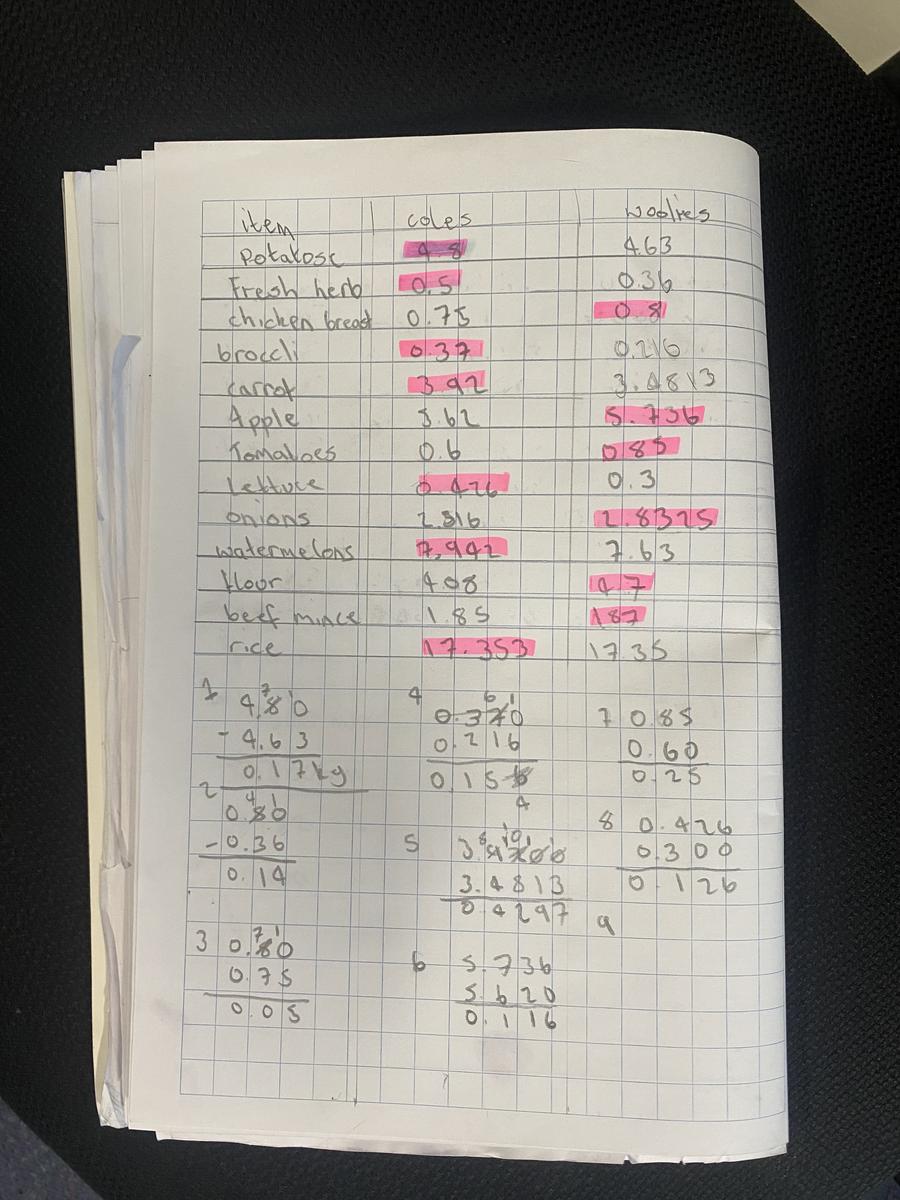 item coles woolies
Potatosc 4.8 4.63
Fresh herb 0.5 0.36
chicken breast 0.75 0.8
broccli 0.37 0.216
carrot 3.92 3.4813
Apple 5.62 5.736
Tomatoes 0.6 0.85
Lettuce 0.426 0.3
onions 2.816 2.8325
watermelons 7,942 7.63
flour 4.08 4.7
beef mince 1.85 1.87
rice 17.353 17.35
1 4.80
- 4.63
0.17kg
2 0.50
- 0.36
0.14
3 0.80
0.75
0.05
4 0.370
0.216
0.154
5 3.9200
3.4813
0.4297
6 5.736
5.620
0.116
7 0.85
0.60
0.25
8 0.426
0.300
0.126
9